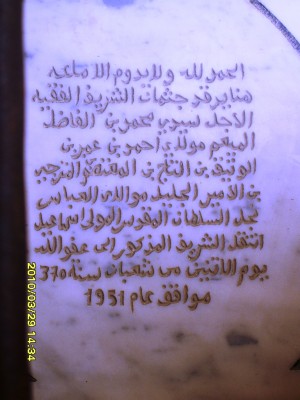 الحمد لله ولا يدوم الا ملكه
هنا يرقد جثمان الشريف الفقيه
الاجل سيدي محمد بن الفاضل
المنعم مولاي احمد بن عمر بن
بن بن
بن الامير الجليل مولاي العباس
نجل السلطان المقدس المولى اسماعيل
انتقل الشريف المذكور الى عفو الله
يوم الاثنين من شعبان سنة 370
موافق عام 1951
2010/03/29 14:34